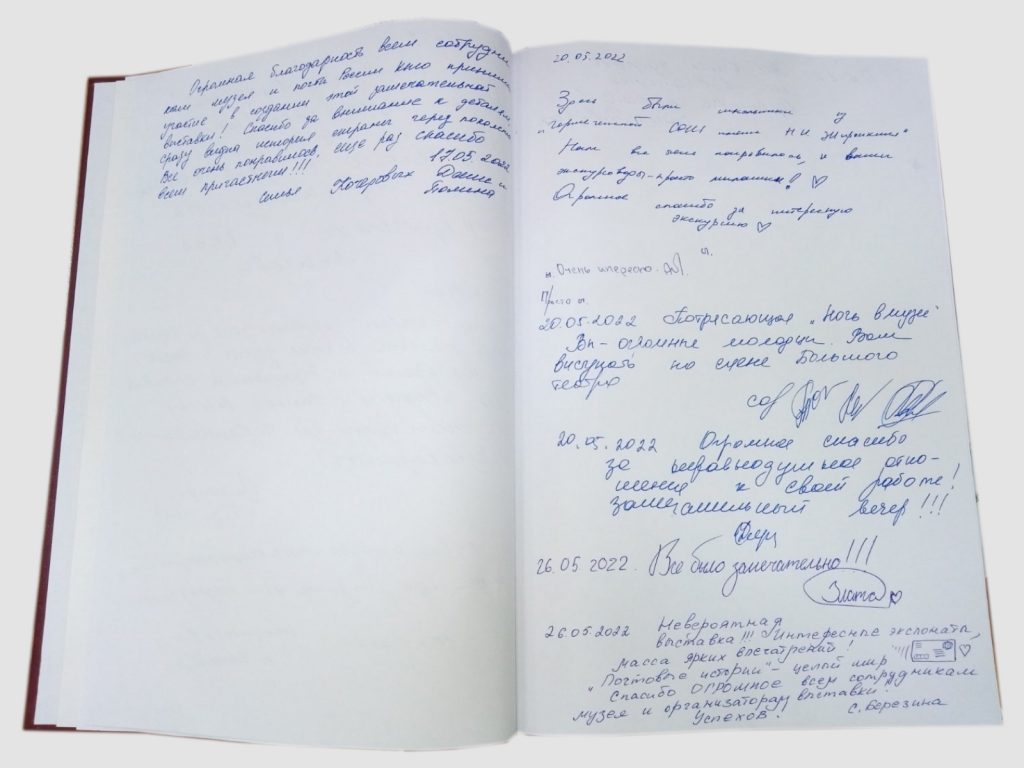 Огромная благодарность всем сотрудни
кам музея и почта России кто принима
участие в создании этой замечательной
выставки! Спасибо за внимание к деталям
сразу видна история страны через поколени
Все очень понравилось, еще раз спасибо
всем причастным!!! 17.05.2022
семья Кочеровых Денис и
Полина
20.05.2022
Здесь были школьники из
"Горячеключевской СОШ имени
Нам все понравилось, и ваши
экскурсоводы - просто милашки! ♡
Огромное спасибо за интересную
экскурсию ♡
Очень инересно.
Просто
20.05.2022 Потрясающая "Ночь в музее"
Вы - огромные молодцы. Вам
виступать на сцене Большого
театра
20.05.2022 Огромное спасибо
за неравнодушное отно-
шение к своей работе!
замечательный вечер!!!
26.05.2022. Все было замечательно!!!
Злата ♡
26.05.2022 Невероятная
выставка!!! Интересные экспонаты,
масса ярких впечатлений!
"Почтовые истории" - целый мир ♡
Спасибо ОГРОМНОЕ всем сотрудникам
музея и организаторам выставки!
Успехов! С. Березина